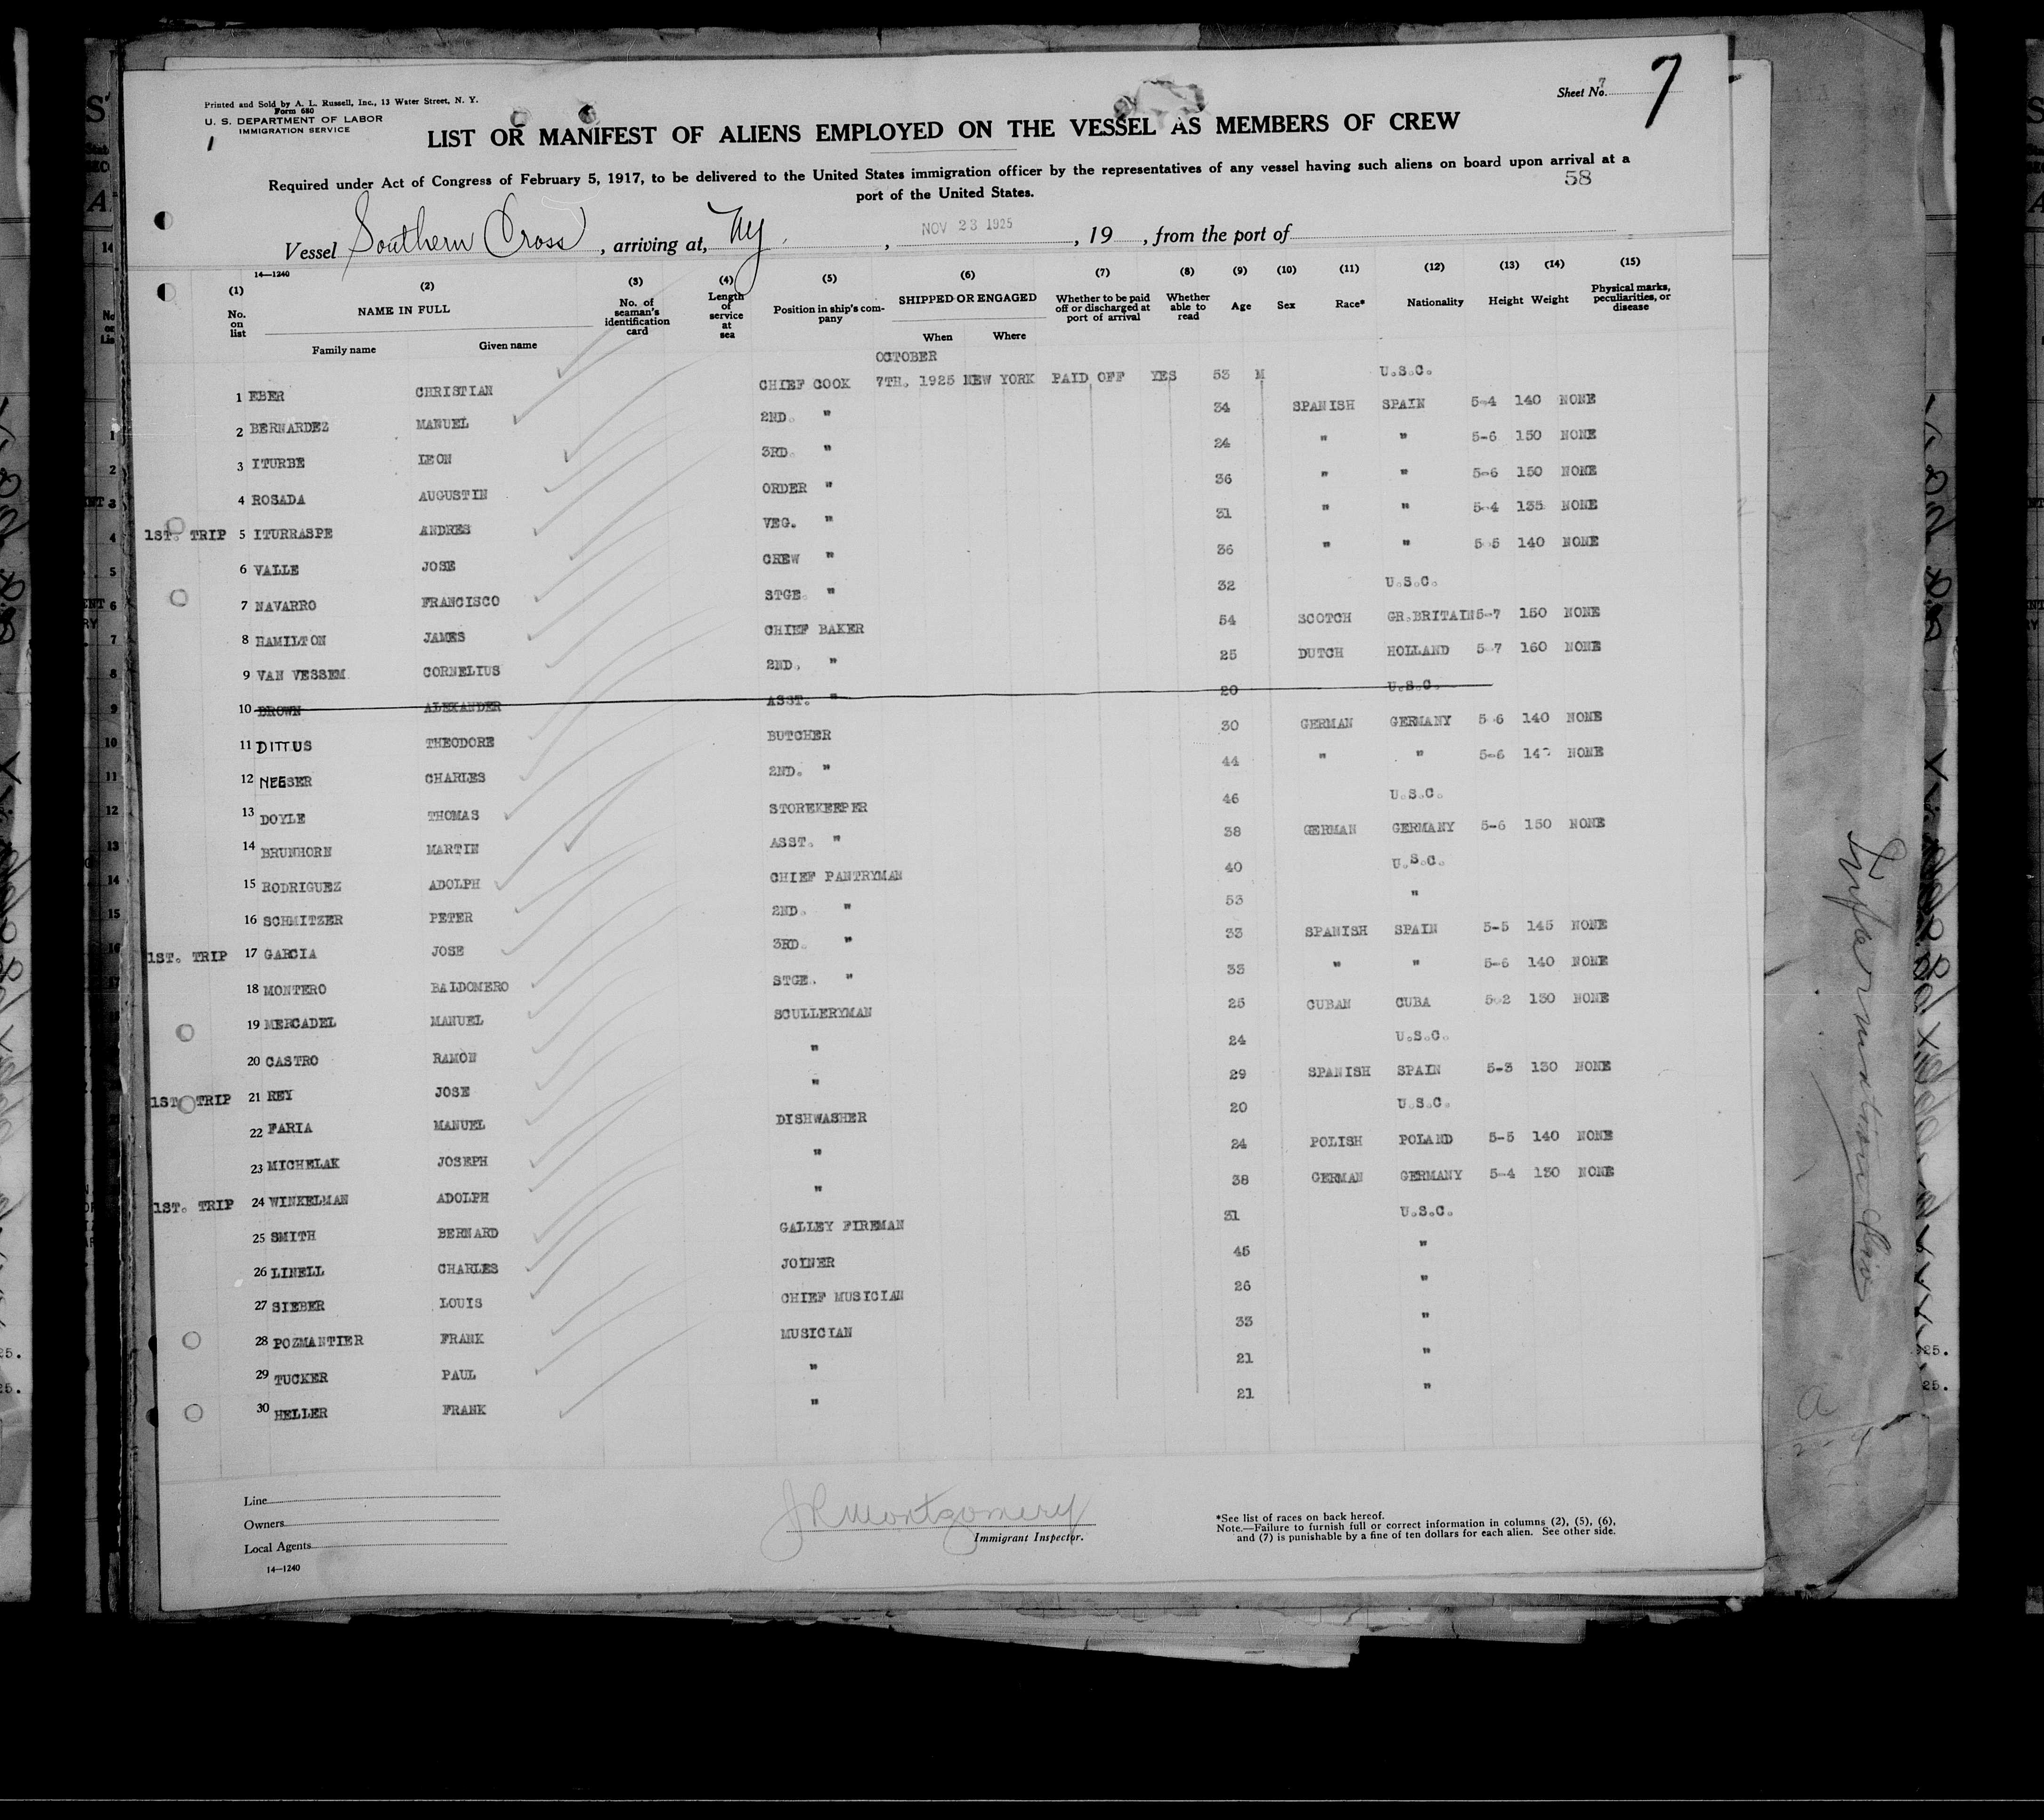 Sheet No. 7
7
Printed and Sold by A. L. Russell, Inc., 13 Water Street, N. Y.
Form 680
U. S. DEPARTMENT OF LABOR
IMMIGRATION SERVICE
LIST OR MANIFEST OF ALIENS EMPLOYED ON THE VESSEL AS MEMBERS OF CREW
Required under Act of Congress of February 5, 1917, to be delivered to the United States immigration officer by the representatives of any vessel having such aliens on board upon arrival at a
port of the United States.
58
Vessel Southern Cross, arriving at, Ny, NOV 23 1925, 19, from the port of
14—1240
(1) (2) (3) (4) (5) (6) (7) (8) (9) (10) (11) (12) (13) (14) (15)
No. on list NAME IN FULL No. of seaman's identification card Length of service at sea Position in ship's company SHIPPED OR ENGAGED Whether to be paid off or discharged at port of arrival Whether able to read Age Sex Race* Nationality Height Weight Physical marks, peculiarities, or disease
Family name Given name When Where
OCTOBER
1 EBER CHRISTIAN CHIEF COOK 7TH. 1925 NEW YORK PAID OFF YES 53 M U.S.C.
2 BERNARDEZ MANUEL 2ND. " 34 SPANISH SPAIN 5-4 140 NONE
3 ITURBE LEON 3RD. " 24 " " 5-6 150 NONE
4 ROSADA AUGUSTIN ORDER " 36 " " 5-6 150 NONE
1ST. TRIP 5 ITURRASPE ANDRES VEG. " 31 " " 5-4 135 NONE
6 VALLE JOSE CREW " 36 " " 5-5 140 NONE
7 NAVARRO FRANCISCO STGE. " 32 U.S.C.
8 HAMILTON JAMES CHIEF BAKER 54 SCOTCH GR.BRITAIN 5-7 150 NONE
9 VAN VESSEM CORNELIUS 2ND. " 25 DUTCH HOLLAND 5-7 160 NONE
10 BROWN ALEXANDER ASST. " 20 U.S.C.
11 DITTUS THEODORE BUTCHER 30 GERMAN GERMANY 5-6 140 NONE
12 NEESER CHARLES 2ND. " 44 " " 5-6 NONE
13 DOYLE THOMAS STOREKEEPER 46 U.S.C.
14 BRUNHORN MARTIN ASST. " 38 GERMAN GERMANY 5-6 150 NONE
15 RODRIGUEZ ADOLPH CHIEF PANTRYMAN 40 U.S.C.
16 SCHMITZER PETER 2ND. " 53 "
1ST. TRIP 17 GARCIA JOSE 3RD. " 33 SPANISH SPAIN 5-5 145 NONE
18 MONTERO BALDOMERO STGE. " 33 " " 5-6 140 NONE
19 MERCADEL MANUEL SCULLERYMAN 25 CUBAN CUBA 5-2 130 NONE
20 CASTRO RAMON " 24 U.S.C.
1ST. TRIP 21 REY JOSE " 29 SPANISH SPAIN 5-3 130 NONE
22 FARIA MANUEL DISHWASHER 20 U.S.C.
23 MICHELAK JOSEPH " 24 POLISH POLAND 5-5 140 NONE
1ST. TRIP 24 WINKELMAN ADOLPH " 38 GERMAN GERMANY 5-4 130 NONE
25 SMITH BERNARD GALLEY FIREMAN 31 U.S.C.
26 LINELL CHARLES JOINER 45 "
27 SIEBER LOUIS CHIEF MUSICIAN 26 "
28 POZMANTIER FRANK MUSICIAN 33 "
29 TUCKER PAUL " 21 "
30 HELLER FRANK " 21 "
Line
Owners
Local Agents
14—1240
JRMontgomery
Immigrant Inspector.
*See list of races on back hereof.
Note.—Failure to furnish full or correct information in columns (2), (5), (6),
and (7) is punishable by a fine of ten dollars for each alien. See other side.